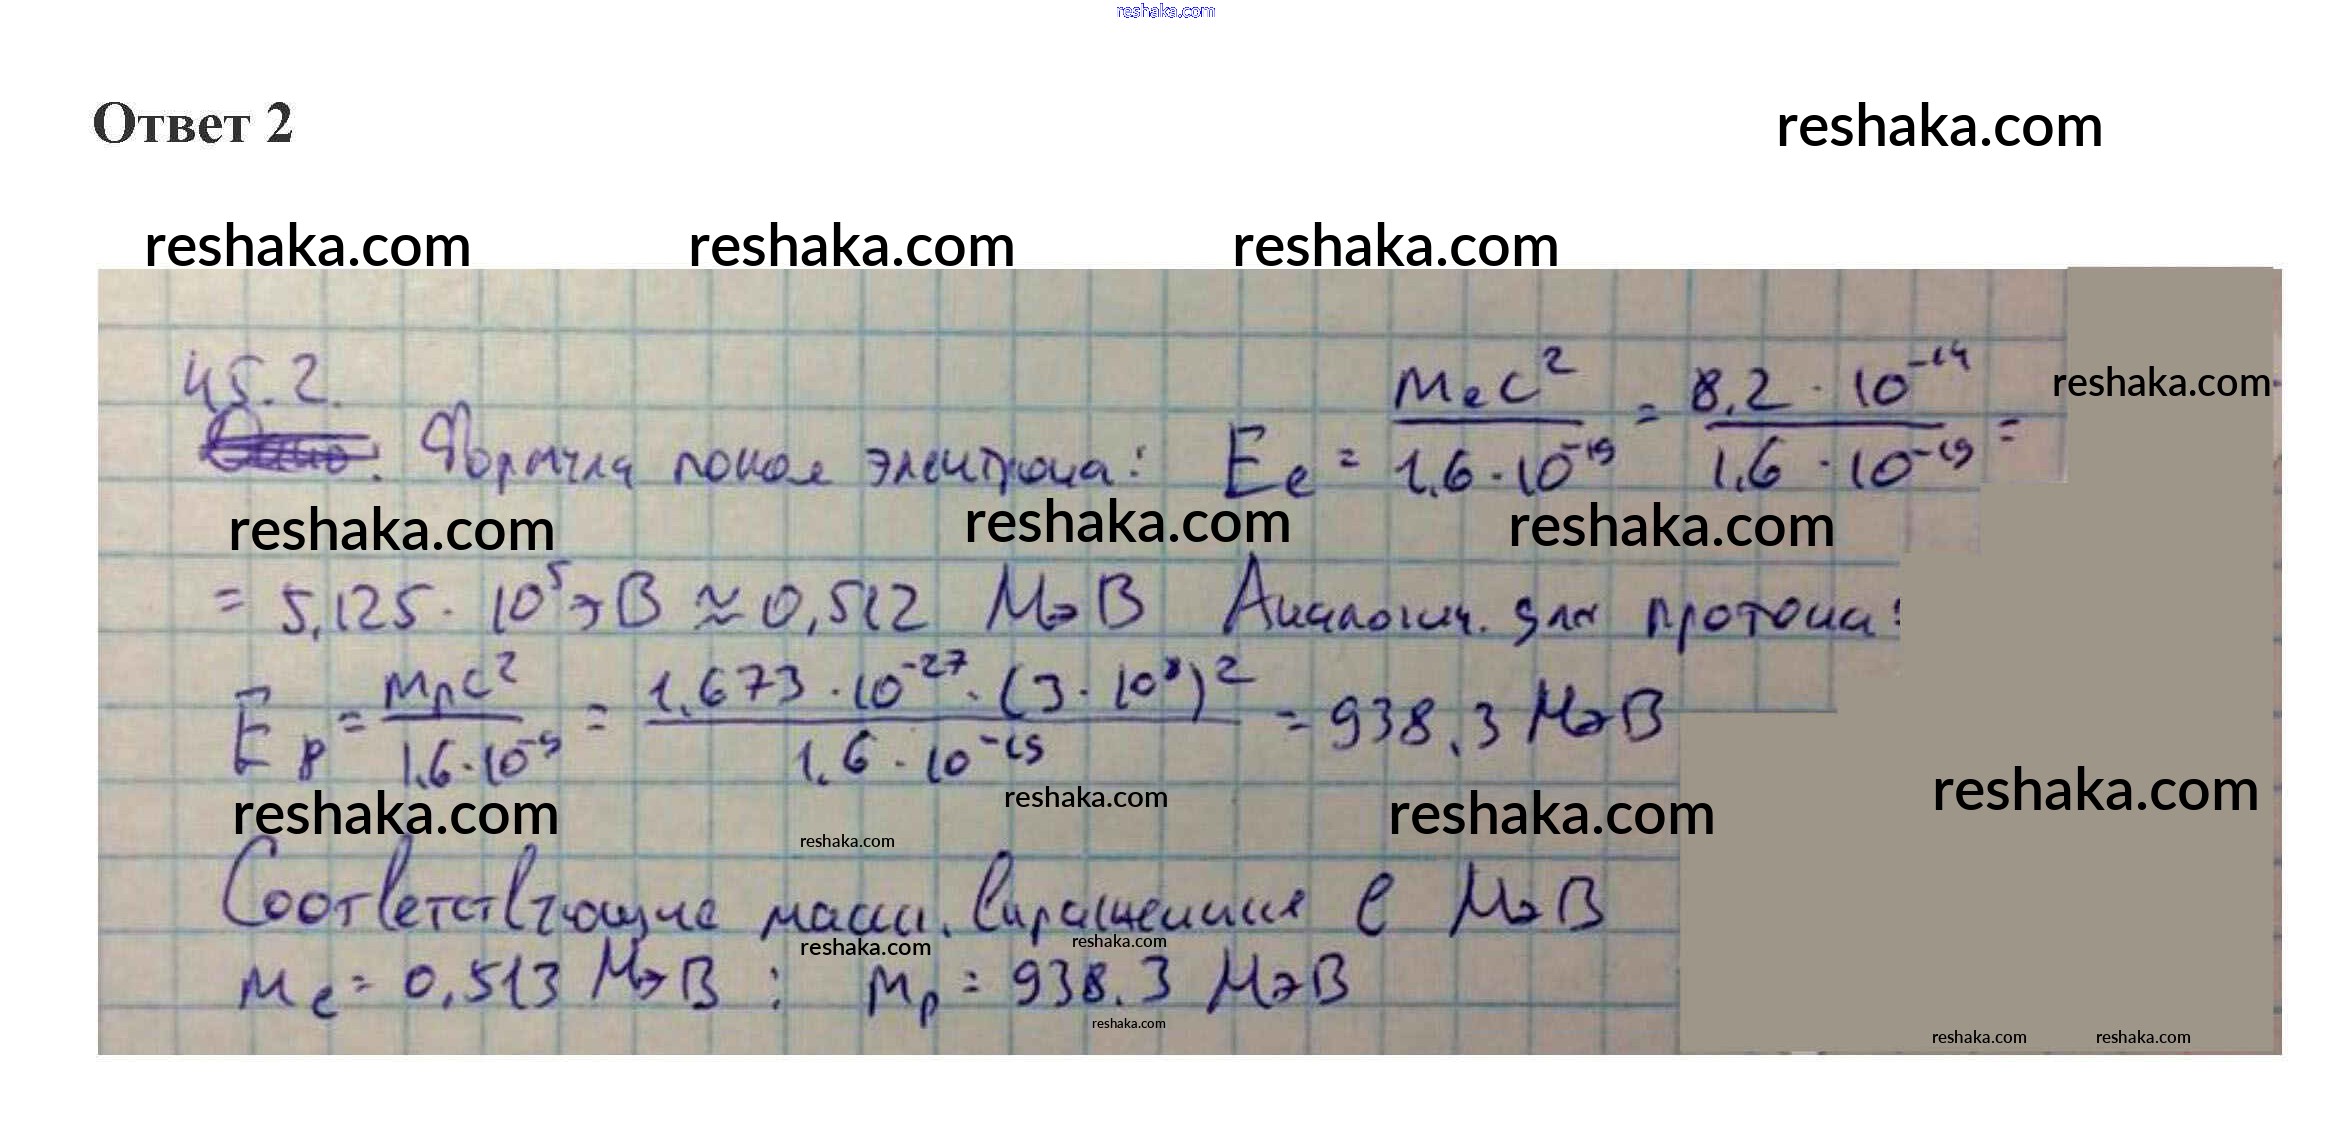 reshaka.com
Ответ 2 reshaka.com
reshaka.com reshaka.com reshaka.com
45.2.
Формула покоя электрона: Eₑ = mₑc² / 1,6 · 10⁻¹⁹ = 8,2 · 10⁻¹⁴ / 1,6 · 10⁻¹⁹ = reshaka.com
reshaka.com reshaka.com reshaka.com
= 5,125 · 10⁵ эВ ≈ 0,512 МэВ Аналогич. для протона:
Eₚ = mₚc² / 1,6 · 10⁻⁹ = 1,673 · 10⁻²⁷ · (3 · 10⁸)² / 1,6 · 10⁻¹⁹ = 938,3 МэВ
reshaka.com reshaka.com reshaka.com reshaka.com
reshaka.com
Соответствующие массы, выраженные в МэВ
reshaka.com reshaka.com
mₑ = 0,513 МэВ ; mₚ = 938,3 МэВ
reshaka.com reshaka.com reshaka.com